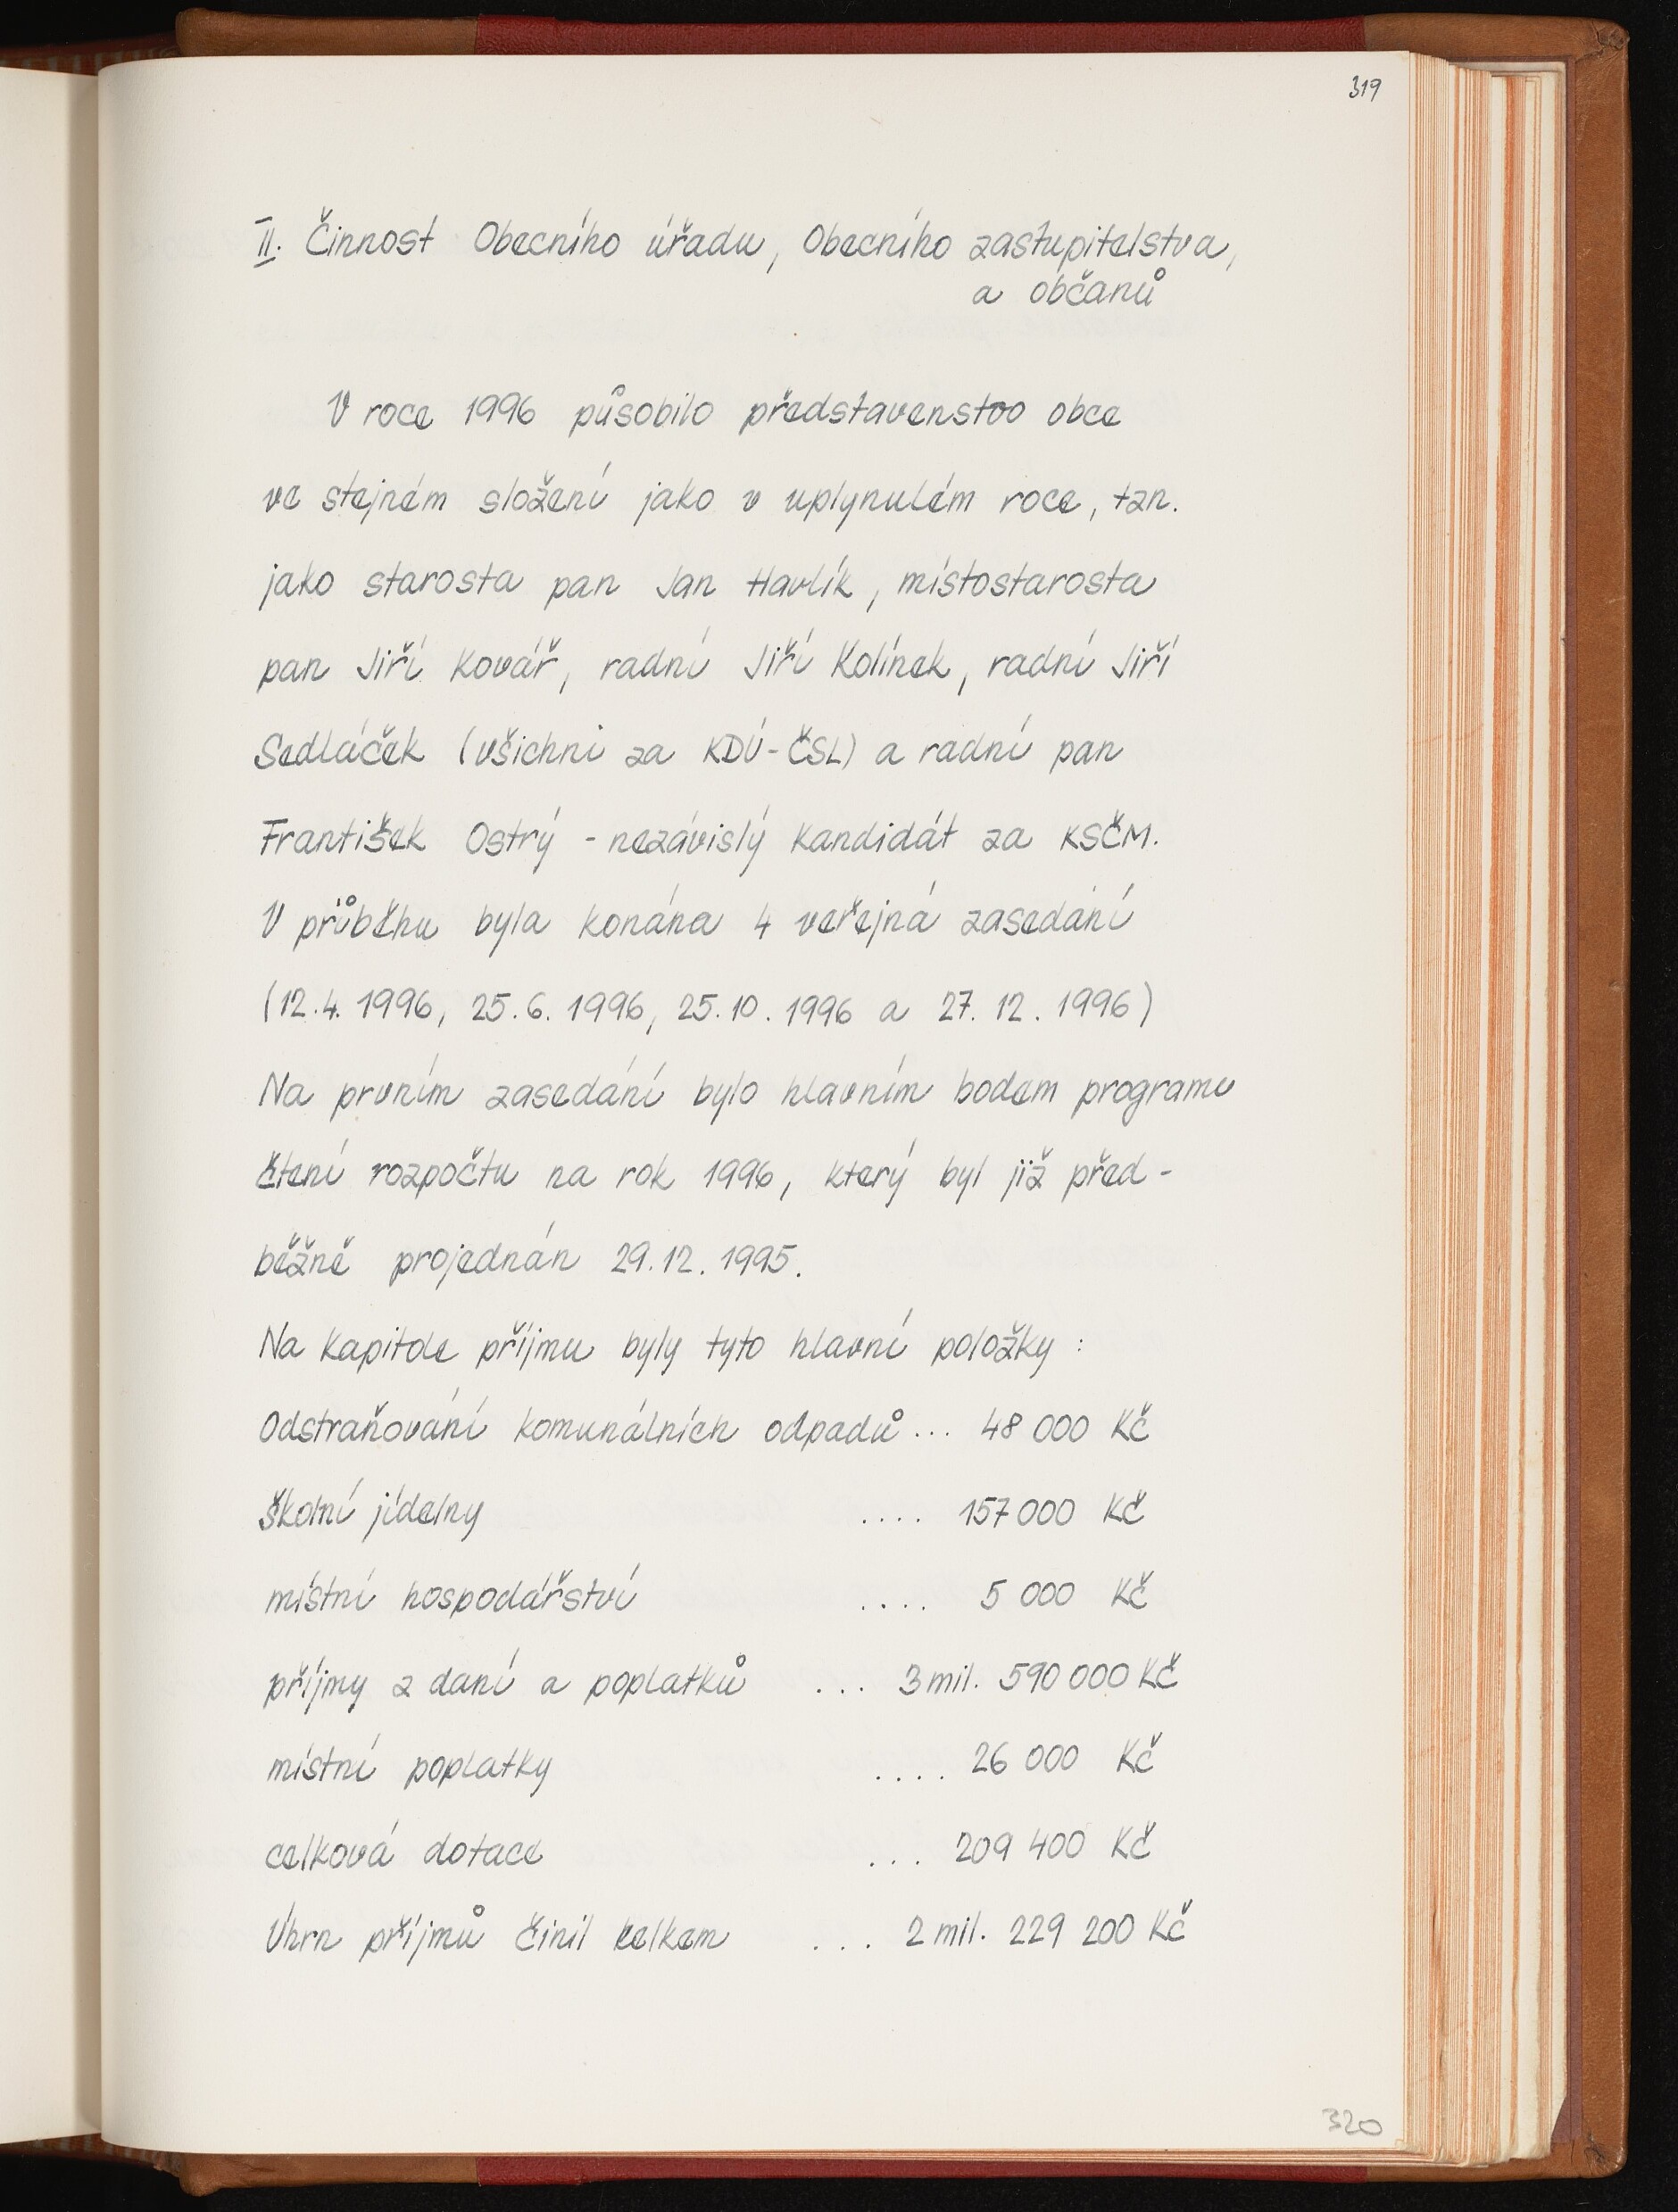 319
II. Činnost Obecního úřadu, Obecního zastupitelstva,
a občanů
V roce 1996 působilo představenstvo obce
ve stejném složení jako v uplynulém roce, tzn.
jako starosta pan Jan Havlík, místostarosta
pan Jiří Kovář, radní Jiří Kolínek, radní Jiří
Sedláček (všichni za KDU-ČSL) a radní pan
František Ostrý - nezávislý kandidát za KSČM.
V průběhu byla konána 4 veřejná zasedání
(12.4. 1996, 25.6. 1996, 25.10. 1996 a 27. 12. 1996)
Na prvním zasedání bylo hlavním bodem programu
čtení rozpočtu na rok 1996, který byl již před-
běžně projednán 29.12. 1995.
Na kapitole příjmu byly tyto hlavní položky :
Odstraňování komunálních odpadů ... 48 000 Kč
školní jídelny .... 157 000 Kč
místní hospodářství .... 5 000 Kč
příjmy z daní a poplatků ... 3 mil. 590 000 Kč
místní poplatky .... 26 000 Kč
celková dotace ... 209 400 Kč
Úhrn příjmů činil celkem ... 2 mil. 229 200 Kč
320